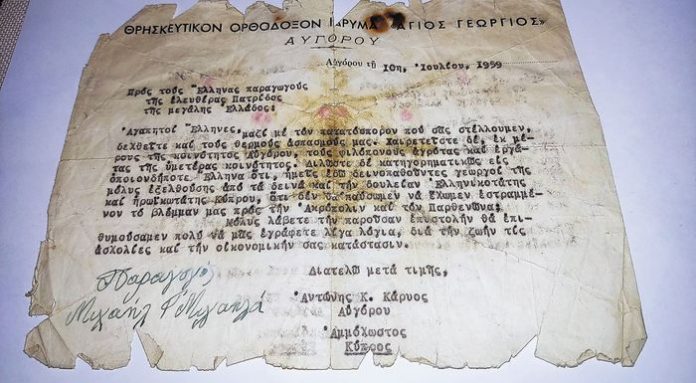 ΘΡΗΣΚΕΥΤΙΚΟΝ ΟΡΘΟΔΟΞΟΝ ΙΔΡΥΜΑ "ΑΓΙΟΣ ΓΕΩΡΓΙΟΣ»
ΑΥΓΟΡΟΥ
Αὐγόρου τῇ 10η, Ἰουλίου, 1959
Πρός τούς Ἕλληνας παραγωγούς
τῆς ἐλευθέρας Πατρίδος
τῆς μεγάλης Ἑλλάδος:
Ἀγαπητοί Ἕλληνες, μαζί μέ τόν πατατόσπορον πού σᾶς στέλλουμεν,
δεχθεῖτε καί τούς θερμούς ἀσπασμούς μας. Χαιρετίστε δέ, ἐκ μέ-
ρους τῆς κοινότητος Αὐγόρου, τούς φιλόπονους ἀγρότας καί ἐργά-
τας τῆς ὑμετέρας κοινότητος. Διλῶστε δέ κατηγορηματικῶς εἰς
ὁποιονδήποτε Ἕλληνα ὅτι, ἡμεῖς ἐδῶ δεινοπαθοῦντες γεωργοί τῆς
μόλυς ἐξελθούσης ἀπό τά δεινά καί τήν δουλείαν Ἑλληνικοτάτης
καί ἡρωϊκωτάτης Κύπρου, ὅτι δέν θά παύσωμεν νά ἔχωμεν ἐστραμμέ-
νον τό βλέμμαν μας πρός τήν Ἀκρόπολιν καί τόν Παρθενῶνα:
Μόλυς λάβετε τήν παροῦσαν ἐπυστολήν θά ἐπι-
θυμούσαμεν πολύ νά μᾶς ἐγράφετε λίγα λόγια, διά τήν ζωήν τίς
ἀσχολίες καί τήν οἰκονομικήν σας κατάστασιν.
Διατελῶ μετά τιμῆς,
Παραγωγός
Μιχαήλ
Ἀντώνης Κ. Κάρυος
Αὐγόρου
Ἀμμόχωστος
Κύπρος